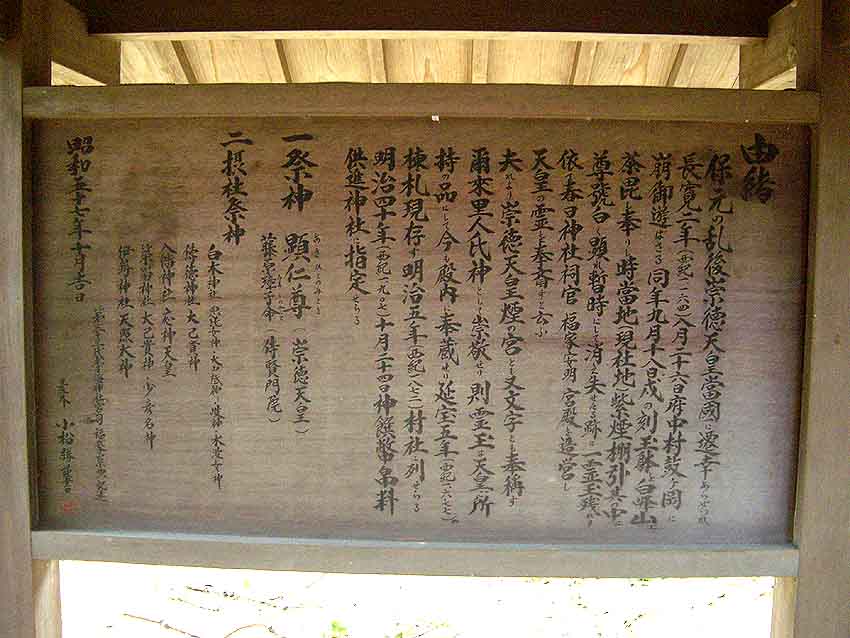 由緒
保元の乱後崇徳天皇當國に遷幸あらせられ
長寛二年(西紀一一六四)八月二十六日府中村鼓ヶ岡に
崩御遊ばさる同年九月十八日戌の刻玉躰を白峰山に
荼毘し奉りし時當地(現社地)紫煙棚引き其の中に
尊號白く顕れ暫時にして消え失せたる跡に一霊玉残れり
依て春日神社祠官福家安明宮殿を造営し
天皇の霊を奉斎すと云ふ
夫れより崇徳天皇煙の宮とも又文字とも奉稱す
爾来里人氏神とし崇敬せり則霊玉は天皇の所
持の品にして今も殿内に奉蔵せり延宝五年(西紀一六七七)の
棟札現存す明治五年(西紀一八七二)村社に列せらる
明治四十年(西紀一九〇七)十月二十四日神饌幣帛料
供進神社に指定せらる
一祭神 顕仁尊(崇徳天皇)
あきひとのみこと
藤原璋子命(待賢門院)
二摂社祭神
白木神社
倍徳神社 大己貴神
八幡神社 応神天皇
大己貴神・少彦名神
伊勢神社 天照大神
昭和五十七年十月吉日
小松